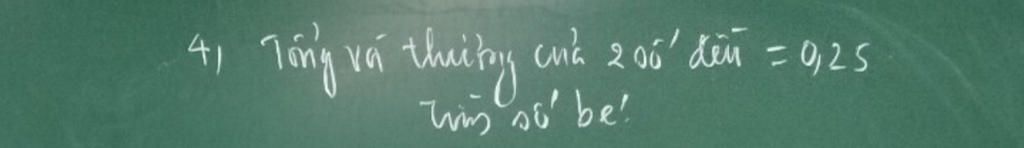 4, Tổng và thương của 2 số đều = 0,25
Tìm số bé!